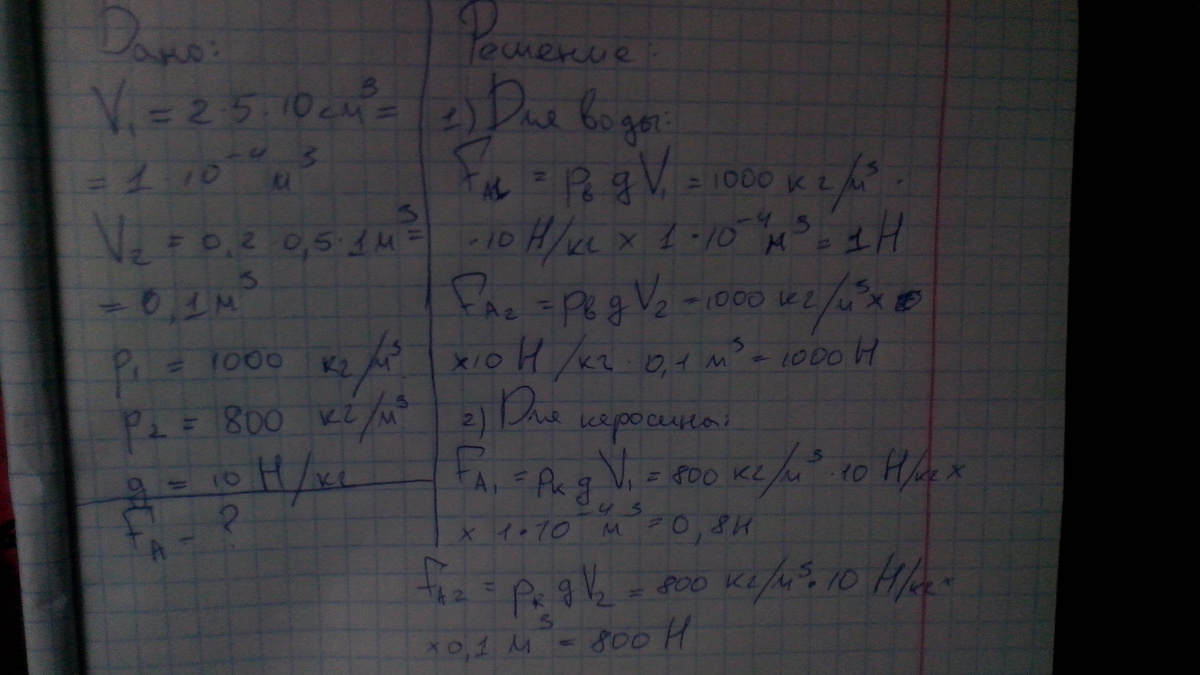 Дано:
V₁ = 2·5·10 см³ =
= 1·10⁻⁴ м³
V₂ = 0,2·0,5·1 м³ =
= 0,1 м³
ρ₁ = 1000 кг/м³
ρ₂ = 800 кг/м³
g = 10 Н/кг
F_A - ?
Решение:
1) Для воды:
F_A1 = ρв g V₁ = 1000 кг/м³ ·
·10 Н/кг × 1·10⁻⁴ м³ = 1 Н
F_A2 = ρв g V₂ = 1000 кг/м³ ×
×10 Н/кг · 0,1 м³ = 1000 Н
2) Для керосина:
F_A1 = ρк g V₁ = 800 кг/м³ · 10 Н/кг ×
× 1·10⁻⁴ м³ = 0,8 Н
F_A2 = ρк g V₂ = 800 кг/м³ · 10 Н/кг ×
×0,1 м³ = 800 Н